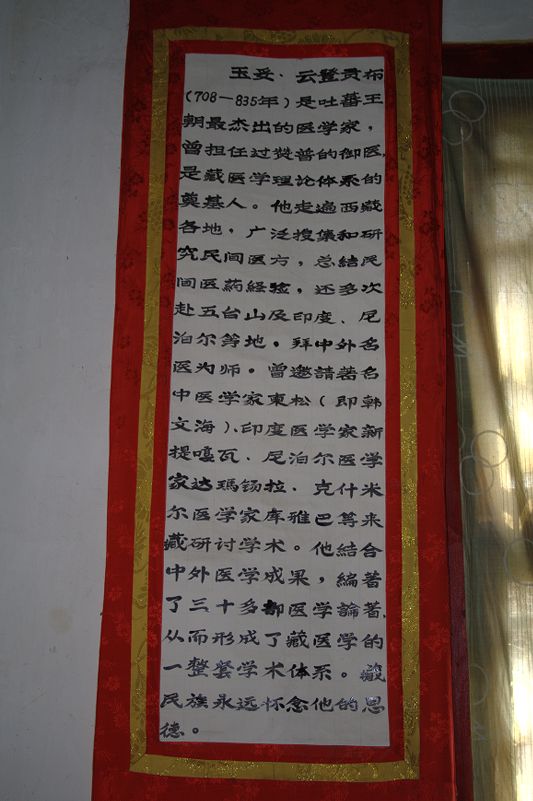 玉妥·云登贡布
(708—835年)是吐蕃王
朝最杰出的医学家，
曾担任过赞普的御医，
是藏医学理论体系的
奠基人。他走遍西藏
各地，广泛搜集和研
究民间医方，总结民
间医药经验，还多次
赴五台山及印度、尼
泊尔等地。拜中外名
医为师。曾邀請著名
中医学家東松(即韩
文海)、印度医学家新
提嘎瓦、尼泊尔医学
家达瑪锡拉、克什米
尔医学家库雅巴等来
藏研讨学术。他結合
中外医学成果，編著
了三十多部医学論著，
从而形成了藏医学的
一整套学术体系。藏
民族永远怀念他的恩
德。